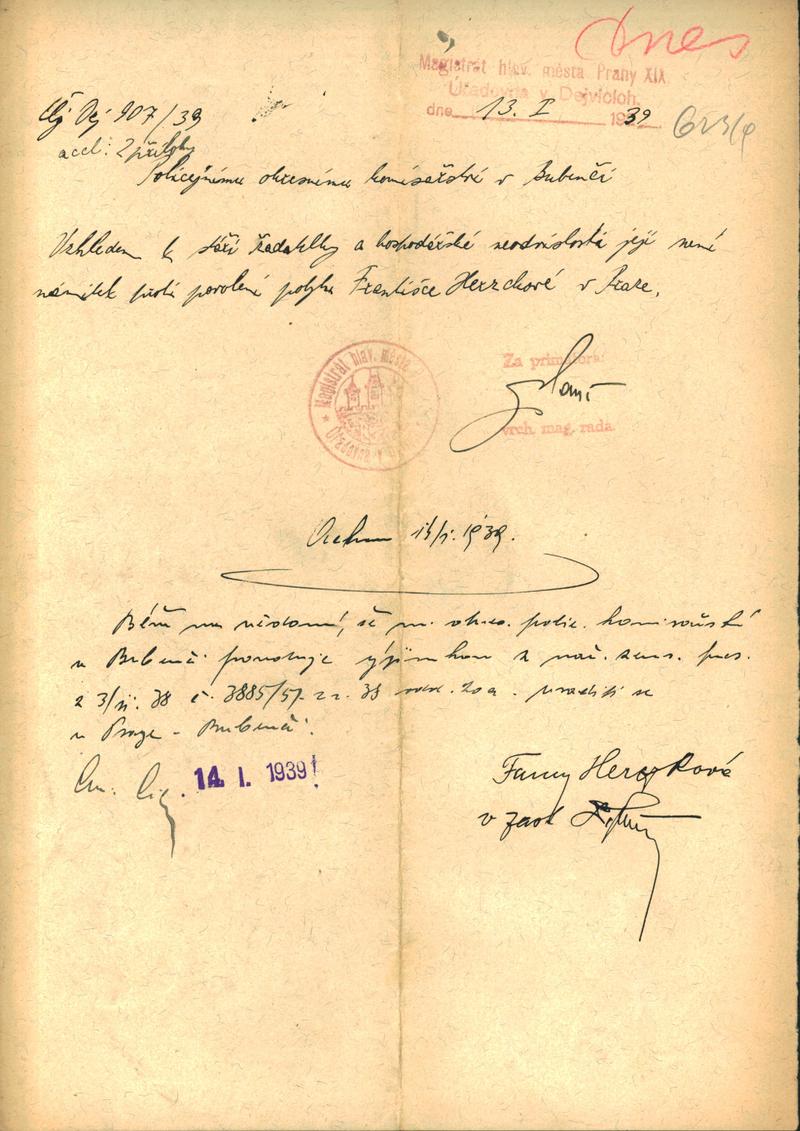 Dnes
Magistrát hlav. města Prahy XIX.
Úřadovna v Dejvicích.
dne 13. I 1939
Čj Dej 907/39
accl: 2 přílohy
Policejnímu okresnímu komisařství v Bubenči
Vzhledem k stáří žadatelky a hospodářské neodvislosti její není
námitek proti povolení pobytu Františce Herzekové v Praze.
Magistrát hlav. města
Úřadovna v
Za primátora:
vrch. mag. rada.
14/I. 1939.
Béře na vědomí, že m. okres. polic. komisařství
v Bubenči povoluje výjimkou z nař. zem. pres.
z 3/ 38 č. 3885/57 38 usaditi se
v Praze - Bubenči.
14. I. 1939!
Fanny Herzekové
v zast